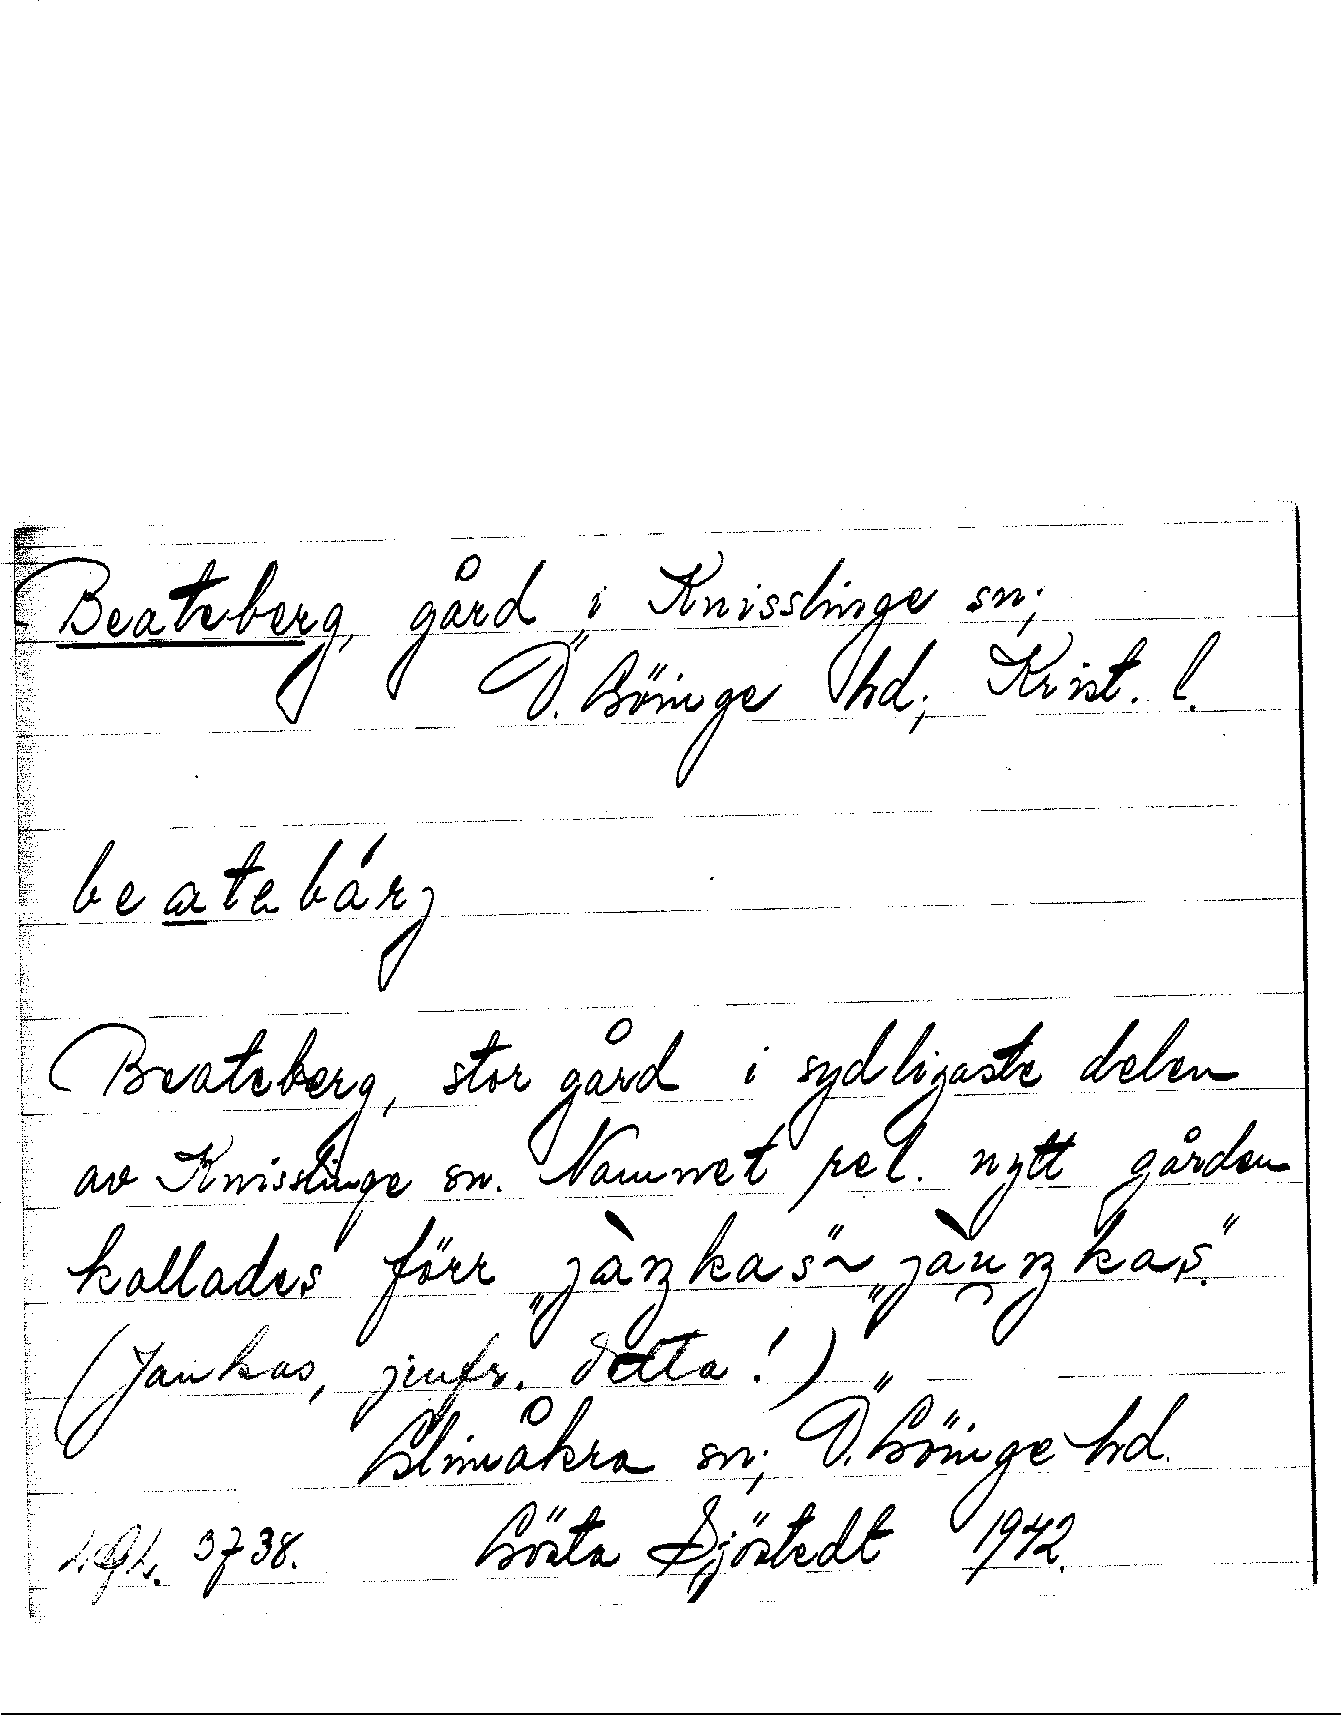 Beateberg, gård i Knisslinge sn;
Ö. Göinge hd; Krist. l.
beatebárj
Beateberg, stor gård i sydligaste delen
av Knisslinge sn. Namnet rel. nytt gården
kallades förr „jàŋkas“ ~ „jàuŋkas“.
(Jankas, jmfr. detta!)
Glimåkra sn; Ö. Göinge hd.
3738. Gösta Sjöstedt 1942.